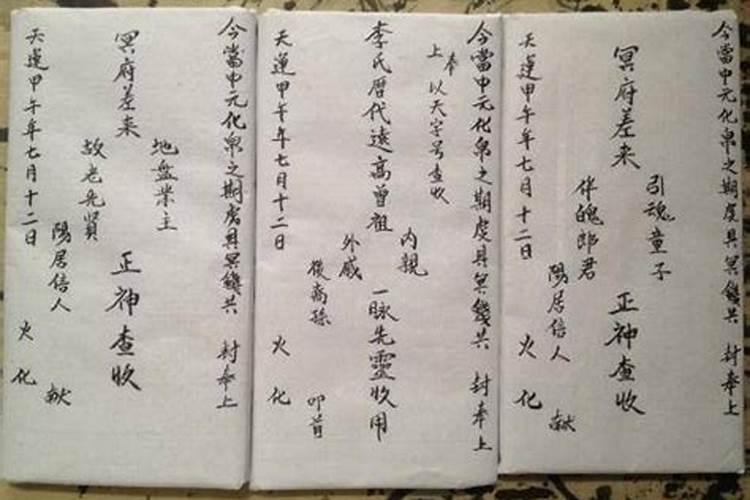 今當中元化帛之期虔具冥錢共 封奉上
引魂童子
冥府差来 正神查收
伴魄郎君
陽居信人 献
天運甲午年七月十二日 火化
今當中元化帛之期虔具冥錢共 封奉上
奉上 以天字号查收
內親
李氏暦代遠高曾祖 一脉先靈收用
外戚
後裔孫 叩首
天運甲午年七月十二日 火化
今當中元化帛之期虔具冥錢共 封奉上
地盤業主
冥府差来 正神查收
故老先賢
陽居信人 献
天運甲午年七月十二日 火化